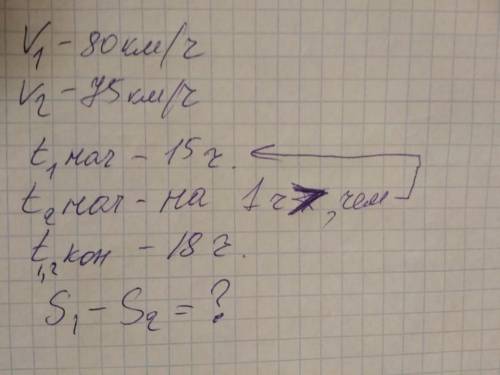 V₁ - 80 км/ч
V₂ - 75 км/ч
t₁ нач - 15 ч.
t₂ нач - на 1 ч >, чем
t₁,₂ кон - 18 ч.
S₁ - S₂ = ?